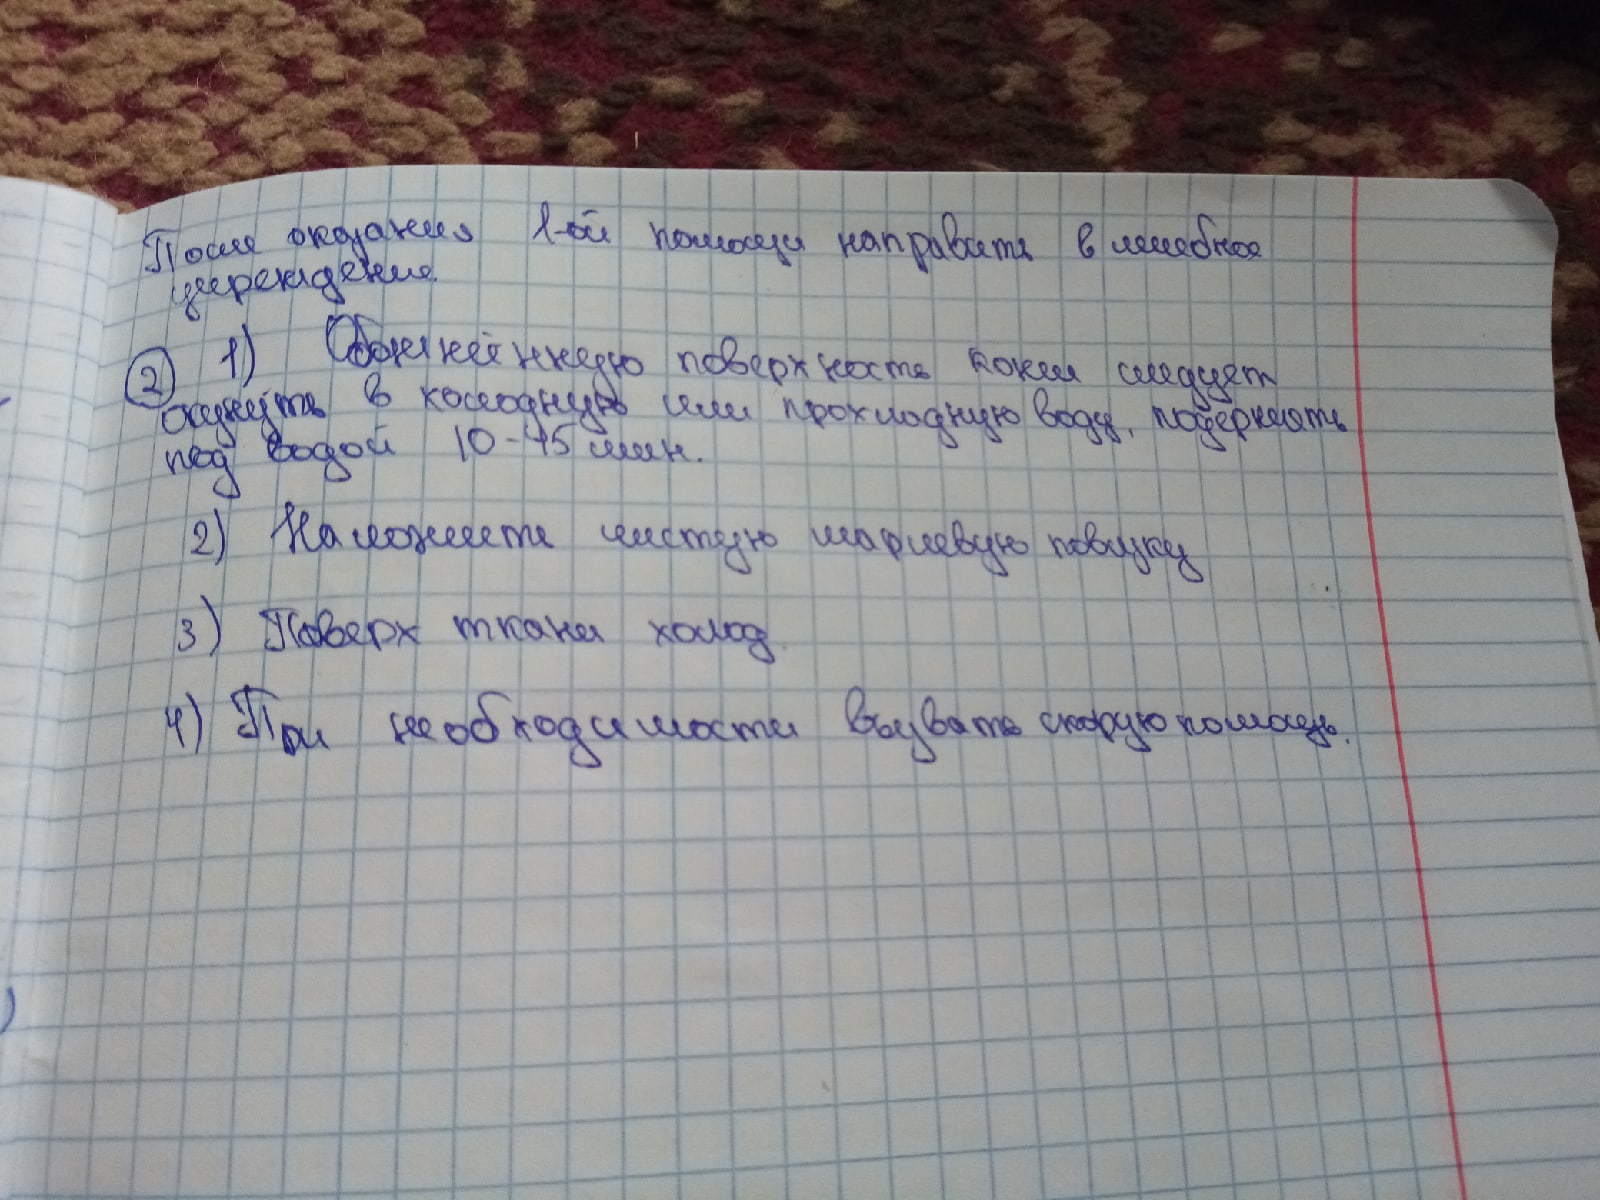 После оказания 1-ой помощи направить в лечебное
учреждение.
2 1) Обожжённую поверхность кожи следует
окунуть в холодную или прохладную воду, подержать
под водой 10-15 мин.
2) Наложите чистую марлевую повязку
3) Поверх ткани холод.
4) При необходимости вызвать скорую помощь.